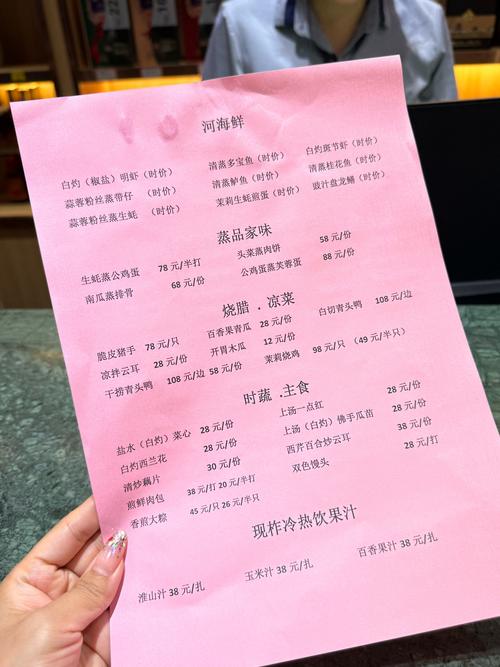 河海鲜
白灼（椒盐）明虾（时价） 清蒸多宝鱼（时价） 白灼斑节虾（时价）
蒜蓉粉丝蒸带仔 （时价） 清蒸鲈鱼（时价） 清蒸桂花鱼（时价）
蒜蓉粉丝蒸生蚝 （时价） 茉莉生蚝煎蛋（时价） 豉汁盘龙鳝（时价）
蒸品家味
生蚝蒸公鸡蛋 78 元/半打 头菜蒸肉饼 58 元/份
南瓜蒸排骨 68 元/份 公鸡蛋蒸芙蓉蛋 88 元/份
烧腊 . 凉菜
脆皮猪手 78 元/只 百香果青瓜 28 元/份 白切青头鸭 108 元/边
凉拌云耳 28 元/份 开胃木瓜 12 元/份
干捞青头鸭 108 元/边 58 元/份 茉莉烧鸡 98 元/只（49 元/半只）
时蔬 .主食
盐水（白灼）菜心 28 元/份 上汤一点红 28 元/份
白灼西兰花 28 元/份 上汤（白灼）佛手瓜苗 28 元/份
清炒藕片 30 元/份 西芹百合炒云耳 38 元/份
煎鲜肉包 38 元/打 20 元/半打 双色馒头 28 元/打
香煎大粽 45 元/只 26 元/半只
现柞冷热饮果汁
淮山汁 38 元/扎 玉米汁 38 元/扎 百香果汁 38 元/扎